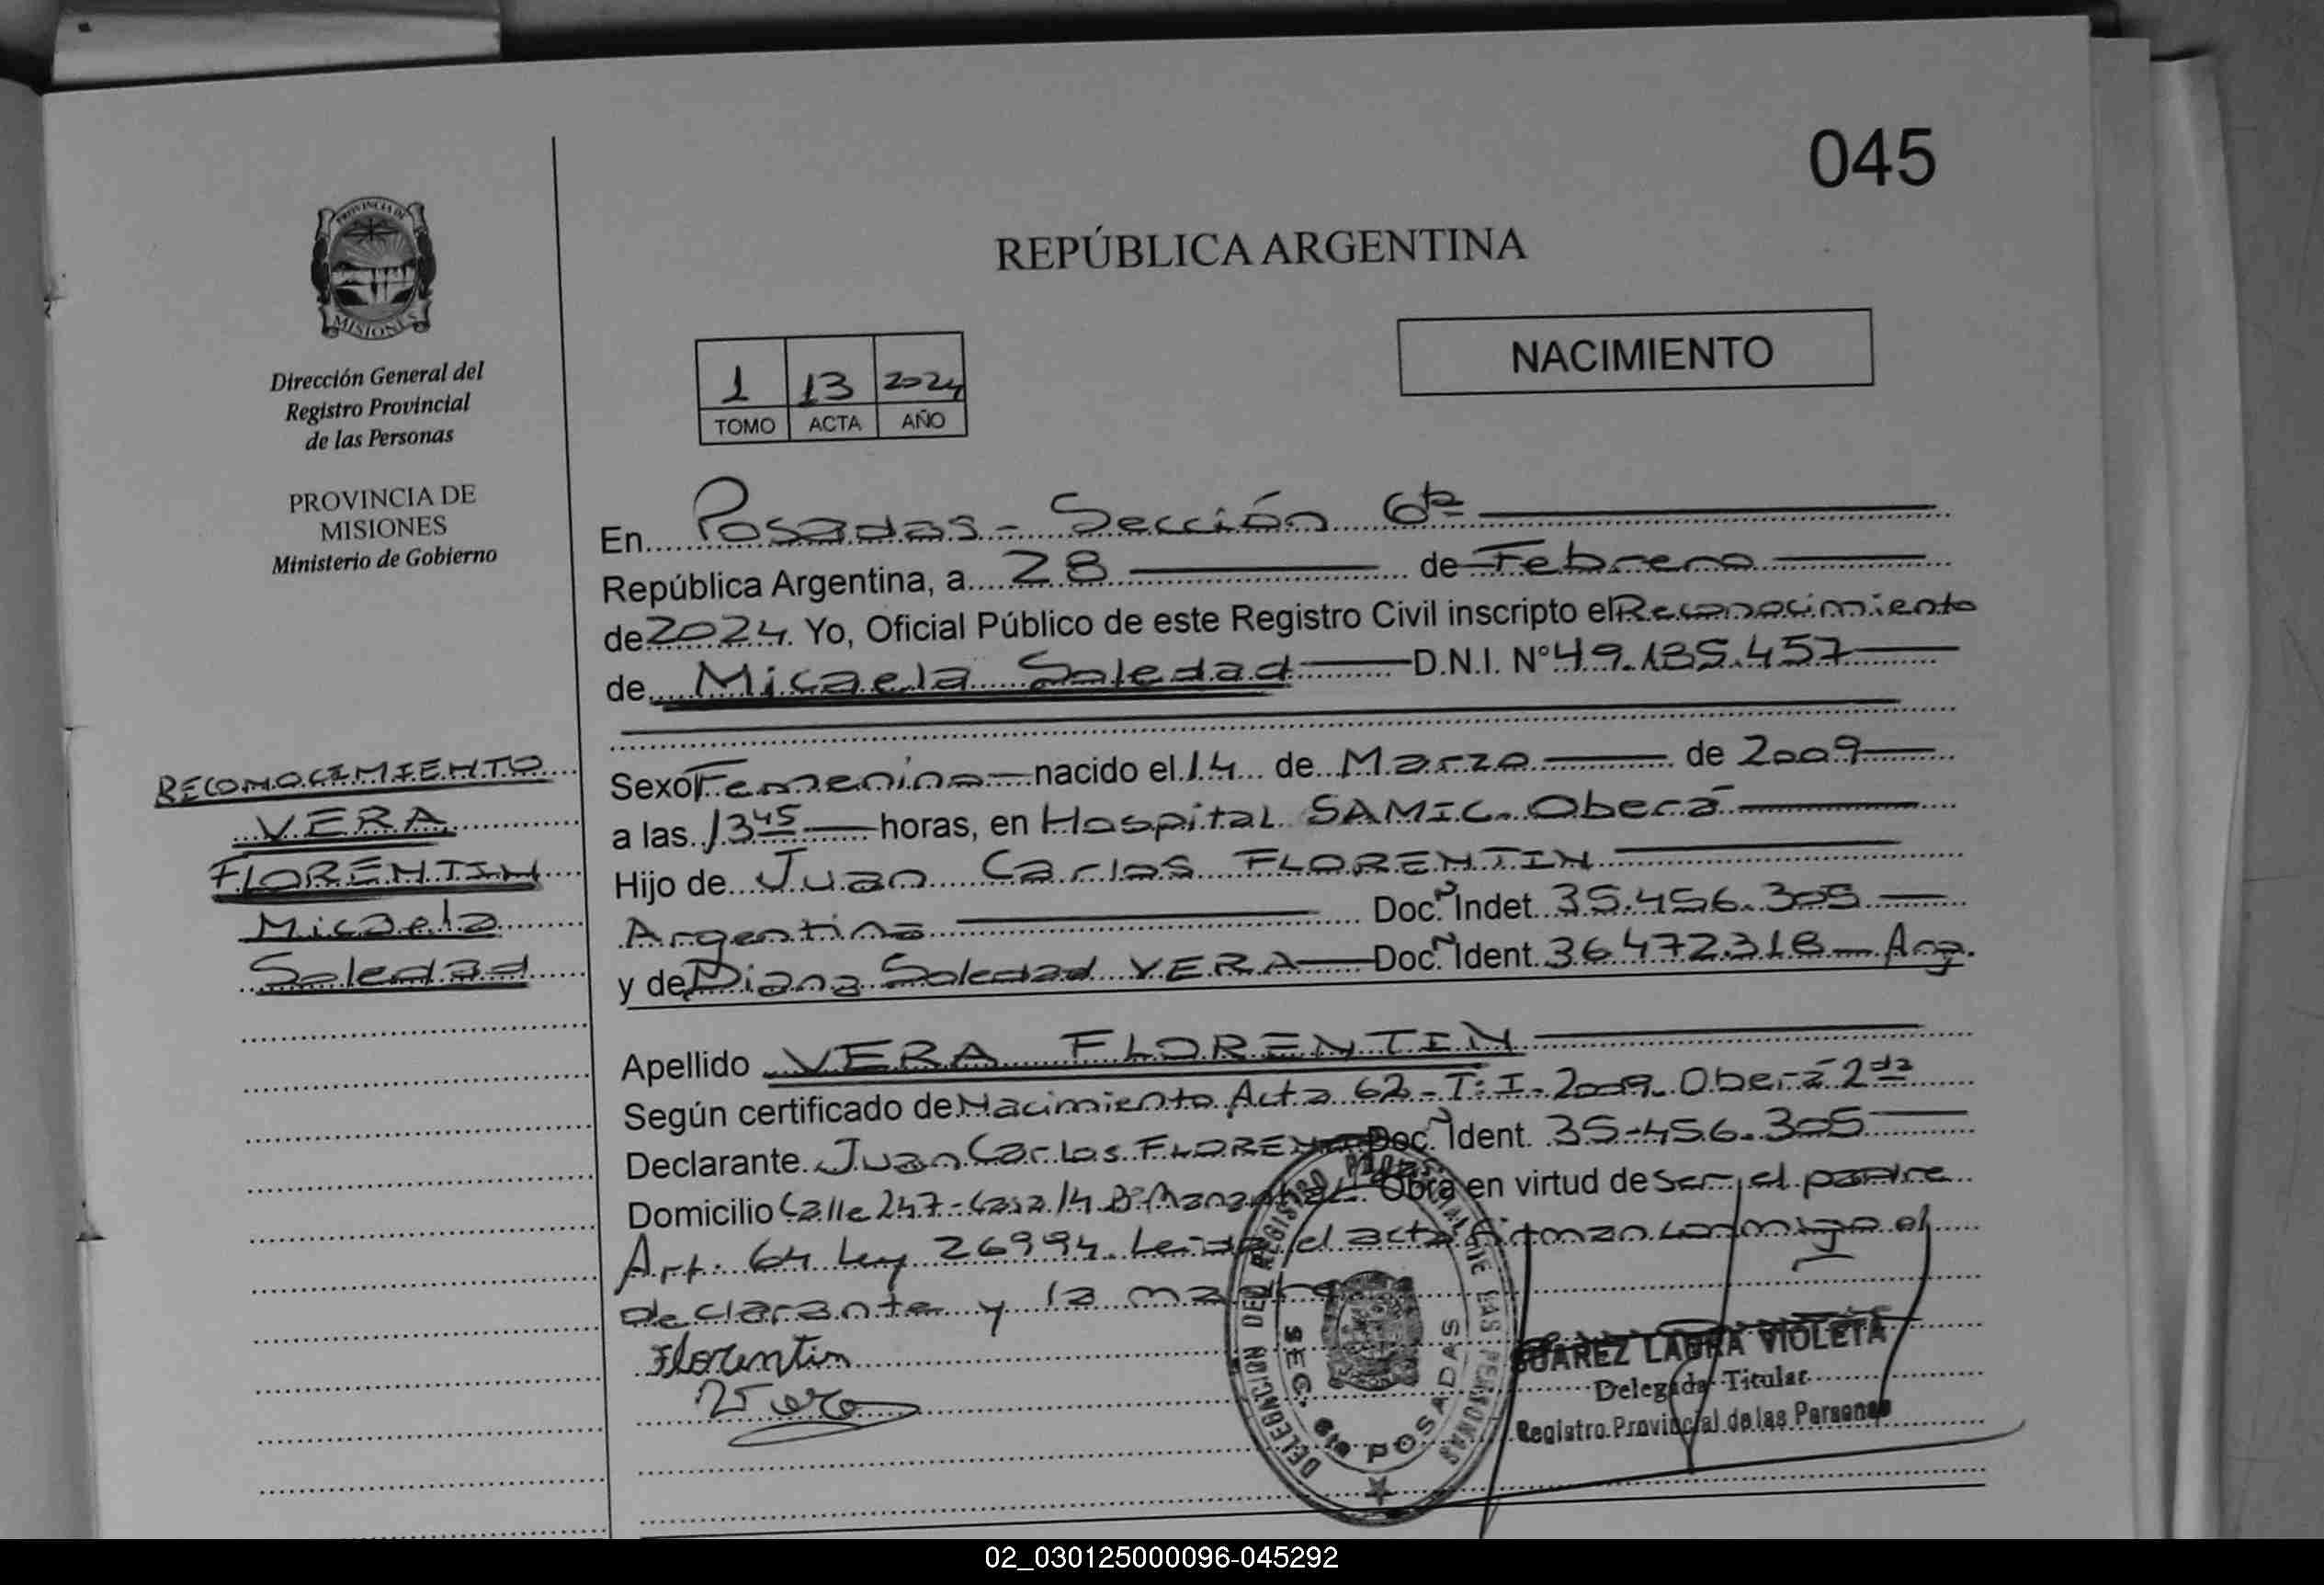 045
REPÚBLICA ARGENTINA
NACIMIENTO
PROVINCIA DE
MISIONES
Dirección General del
Registro Provincial
de las Personas
PROVINCIA DE
MISIONES
Ministerio de Gobierno
1 13 2024
TOMO ACTA AÑO
En Posadas - Sección 6ta
República Argentina, a 28 de Febrero
de 2024. Yo, Oficial Público de este Registro Civil inscripto el Reconocimiento
de Micaela Soledad D.N.I. Nº 49.185.457
Sexo Femenino nacido el 14 de Marzo de 2009
a las 13 45 horas, en Hospital SAMIC. Oberá
Hijo de Juan Carlos FLORENTIN
Argentino Doc. Nº Indet. 35.456.305
y de Diana Soledad VERA Doc. Nº Ident. 36.472.318 - Arg.
RECONOCIMIENTO
VERA
FLORENTIN
Micaela
Soledad
Apellido VERA FLORENTIN
Según certificado de Nacimiento Acta 62 - T: I - 2009. Oberá 2da
Declarante Juan Carlos FLORENTIN Doc. Nº Ident. 35.456.305
Domicilio Calle 247 - Casa 14 Bº Manantial. Obra en virtud de ser el padre
Art. 64 Ley 26994. Leída el acta firman conmigo el
declarante y la madre
Florentin
Vera
DELEGACION DEL REGISTRO PROVINCIAL DE LAS PERSONAS
SEC. 6ta POSADAS
SUAREZ LAURA VIOLETA
Delegada Titular
Registro Provincial de las Personas
02_030125000096-045292